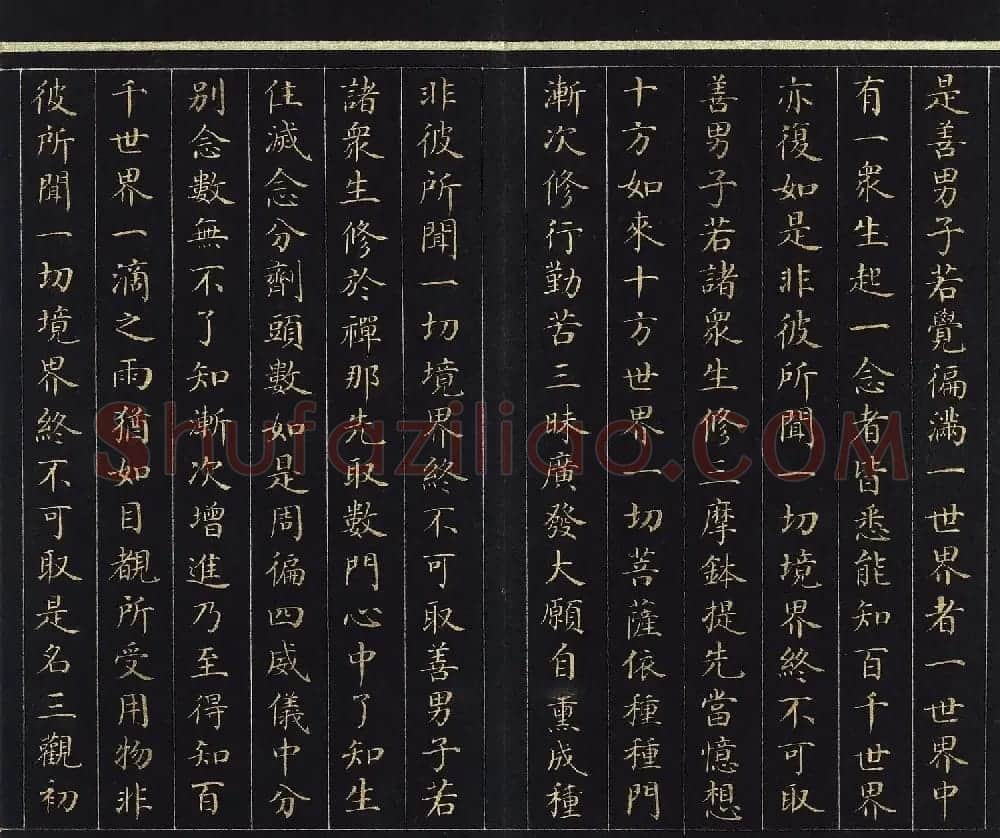 是善男子若覺徧滿一世界者一世界中
有一衆生起一念者皆悉能知百千世界
亦復如是非彼所聞一切境界終不可取
善男子若諸衆生修三摩鉢提先當憶想
十方如來十方世界一切菩薩依種種門
漸次修行勤苦三昧廣發大願自熏成種
非彼所聞一切境界終不可取善男子若
諸衆生修於禪那先取數門心中了知生
住滅念分劑頭數如是周徧四威儀中分
別念數無不了知漸次增進乃至得知百
千世界一滴之雨猶如目覩所受用物非
彼所聞一切境界終不可取是名三觀初
Shufaziliao.COM